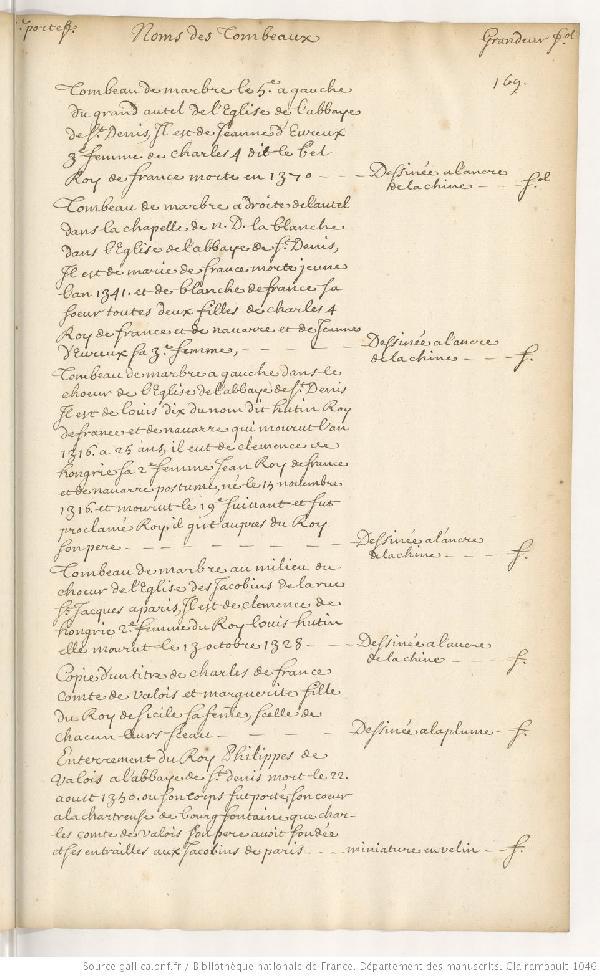 portef. Noms des Tombeaux Grandeur fol.
169.
Tombeau de marbre le 5.e a gauche
du grand autel de l'Eglise de l'abbaye
de St. Denis, Il est de Jeanne d'Evreux
3.e femme de charles 4 dit le bel
Roy de france morte en 1370 - - - Dessinée a l'ancre
de la chine - - fol.
Tombeau de marbre a droite de l'autel
dans la chapelle de n. D. la blanche
dans l'Eglise de l'abbaye de St. Denis,
Il est de marie de france morte jeune
l'an 1341. et de blanche de france sa
soeur toutes deux filles de charles 4
Roy de france et de navarre et de Jeanne
d'Evreux sa 3.e femme, - - - - Dessinée a l'ancre
de la chine - - f.
Tombeau de marbre a gauche dans le
choeur de l'Eglise de l'abbaye de St. Denis
Il est de louis dix du nom dit hutin Roy
de france et de navarre qui mourut l'an
1316. a 25 ans, il eut de clemence de
hongrie sa 2.e femme Jean Roy de france
et de navarre postume, né le 15 novembre
1316. et mourut le 19.e suivant et fut
proclamé Roy, il gist aupres du Roy
son pere - - - - - - - Dessinée a l'ancre
de la chine - - - f.
Tombeau de marbre au milieu du
choeur de l'Eglise des Jacobins de la rue
St. Jacques a paris, Il est de clemence de
hongrie 2.e femme du Roy louis hutin
elle mourut le 13 octobre 1328 - - Dessinée a l'ancre
de la chine - - - f.
Copie d'un titre de charles de france
comte de valois et marguerite fille
du Roy de sicile sa feme, scellé de
chacun leurs sceau - - - - - Dessinée a la plume - f.
Enterrement du Roy Philippes de
valois a l'abbaye de St. denis mort le 22.
aoust 1350. ou son corps fut porté, son coeur
a la chartreuse de bourgfontaine que char-
les comte de valois son pere avoit fondée
et ses entrailles aux Jacobins de paris - - - miniature en velin - - f.
Source gallica.bnf.fr / Bibliothèque nationale de France. Département des manuscrits. Clairambault 1046